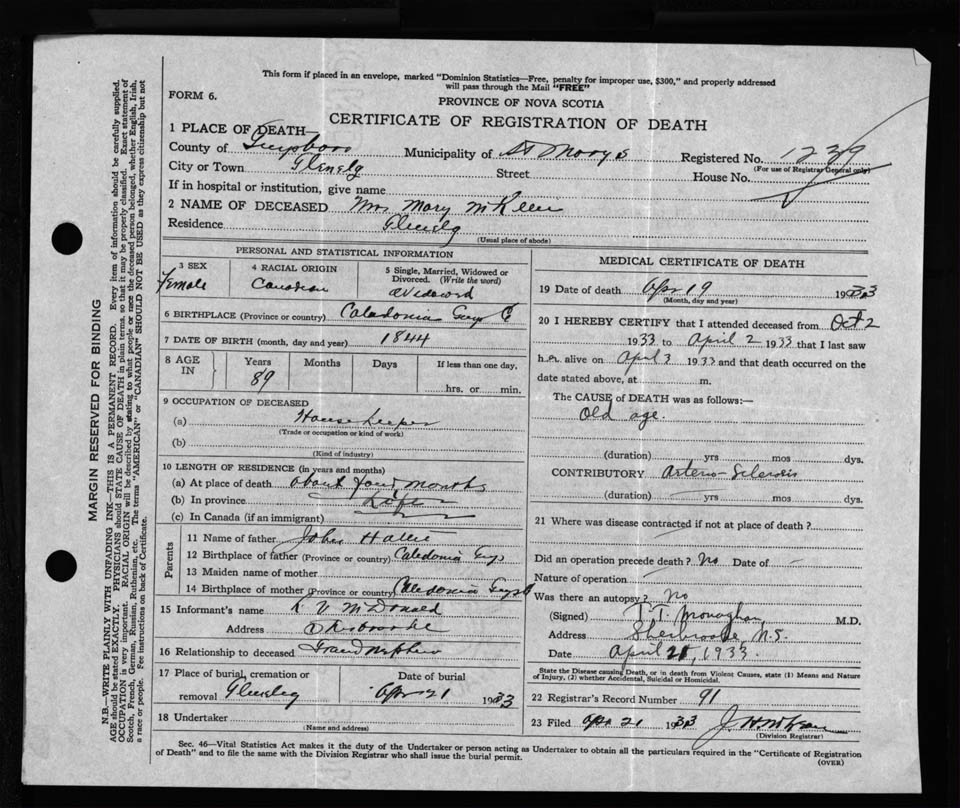 This form if placed in an envelope, marked "Dominion Statistics—Free, penalty for improper use, $300," and properly addressed
will pass through the Mail "FREE"
FORM 6.
PROVINCE OF NOVA SCOTIA
CERTIFICATE OF REGISTRATION OF DEATH
1 PLACE OF DEATH—
County of Guysboro Municipality of St Marys Registered No. 1239
(For use of Registrar General only)
City or Town Glenelg Street House No.
If in hospital or institution, give name
2 NAME OF DECEASED Mrs Mary McKeen
Residence Glenelg
(Usual place of abode)
PERSONAL AND STATISTICAL INFORMATION
3 SEX
Female
4 RACIAL ORIGIN
Canadian
5 Single, Married, Widowed or
Divorced. (Write the word)
Widowed
6 BIRTHPLACE (Province or country) Caledonia Guys Co
7 DATE OF BIRTH (month, day and year) 1844
8 AGE
IN
Years Months Days If less than one day,
89
hrs. or min.
9 OCCUPATION OF DECEASED
(a) House keeper
(Trade or occupation or kind of work)
(b)
(Kind of industry)
10 LENGTH OF RESIDENCE (in years and months)
(a) At place of death about four months
(b) In province Life
(c) In Canada (if an immigrant)
Parents
11 Name of father John Hattie
12 Birthplace of father (Province or country) Caledonia Guys
13 Maiden name of mother
14 Birthplace of mother (Province or country) Caledonia Guys
15 Informant's name K V McDonald
Address
16 Relationship to deceased Grand nephew
17 Place of burial, cremation or
removal Glenelg
Date of burial
Apr 21 1933
18 Undertaker
(Name and address)
MEDICAL CERTIFICATE OF DEATH
19 Date of death Apr 19 1933
(Month, day and year)
20 I HEREBY CERTIFY that I attended deceased from Oct 2
1933 to April 2 1933 that I last saw
h er alive on April 3 1933 and that death occurred on the
date stated above, at m.
The CAUSE of DEATH was as follows:—
Old age.
(duration) yrs mos dys.
CONTRIBUTORY Arterio-Sclerosis
(duration) yrs mos dys.
21 Where was disease contracted if not at place of death?
Did an operation precede death? No Date of
Nature of operation
Was there an autopsy? No
(Signed) T. T. Monaghan M.D.
Address Sherbrooke, N.S.
Date April 21, 1933.
State the Disease causing Death, or in death from Violent Causes, state (1) Means and Nature
of Injury, (2) whether Accidental, Suicidal or Homicidal.
22 Registrar's Record Number 91
23 Filed Apr 21 1933
(Division Registrar)
Sec. 46—Vital Statistics Act makes it the duty of the Undertaker or person acting as Undertaker to obtain all the particulars required in the "Certificate of Registration
of Death" and to file the same with the Division Registrar who shall issue the burial permit.
(OVER)
MARGIN RESERVED FOR BINDING
N.B.—WRITE PLAINLY WITH UNFADING INK—THIS IS A PERMANENT RECORD. Every item of information should be carefully supplied.
AGE should be stated EXACTLY. PHYSICIANS should STATE CAUSE OF DEATH in plain terms, so that it may be properly classified. Exact statement of
OCCUPATION is very important. RACIAL ORIGIN will be described by stating to what people or race the deceased person belonged, whether English, Irish,
Scotch, French, German, Russian, Ruthenian, etc. The terms "AMERICAN" or "CANADIAN" SHOULD NOT BE USED as they express citizenship but not
a race or people. See instructions on back of Certificate.